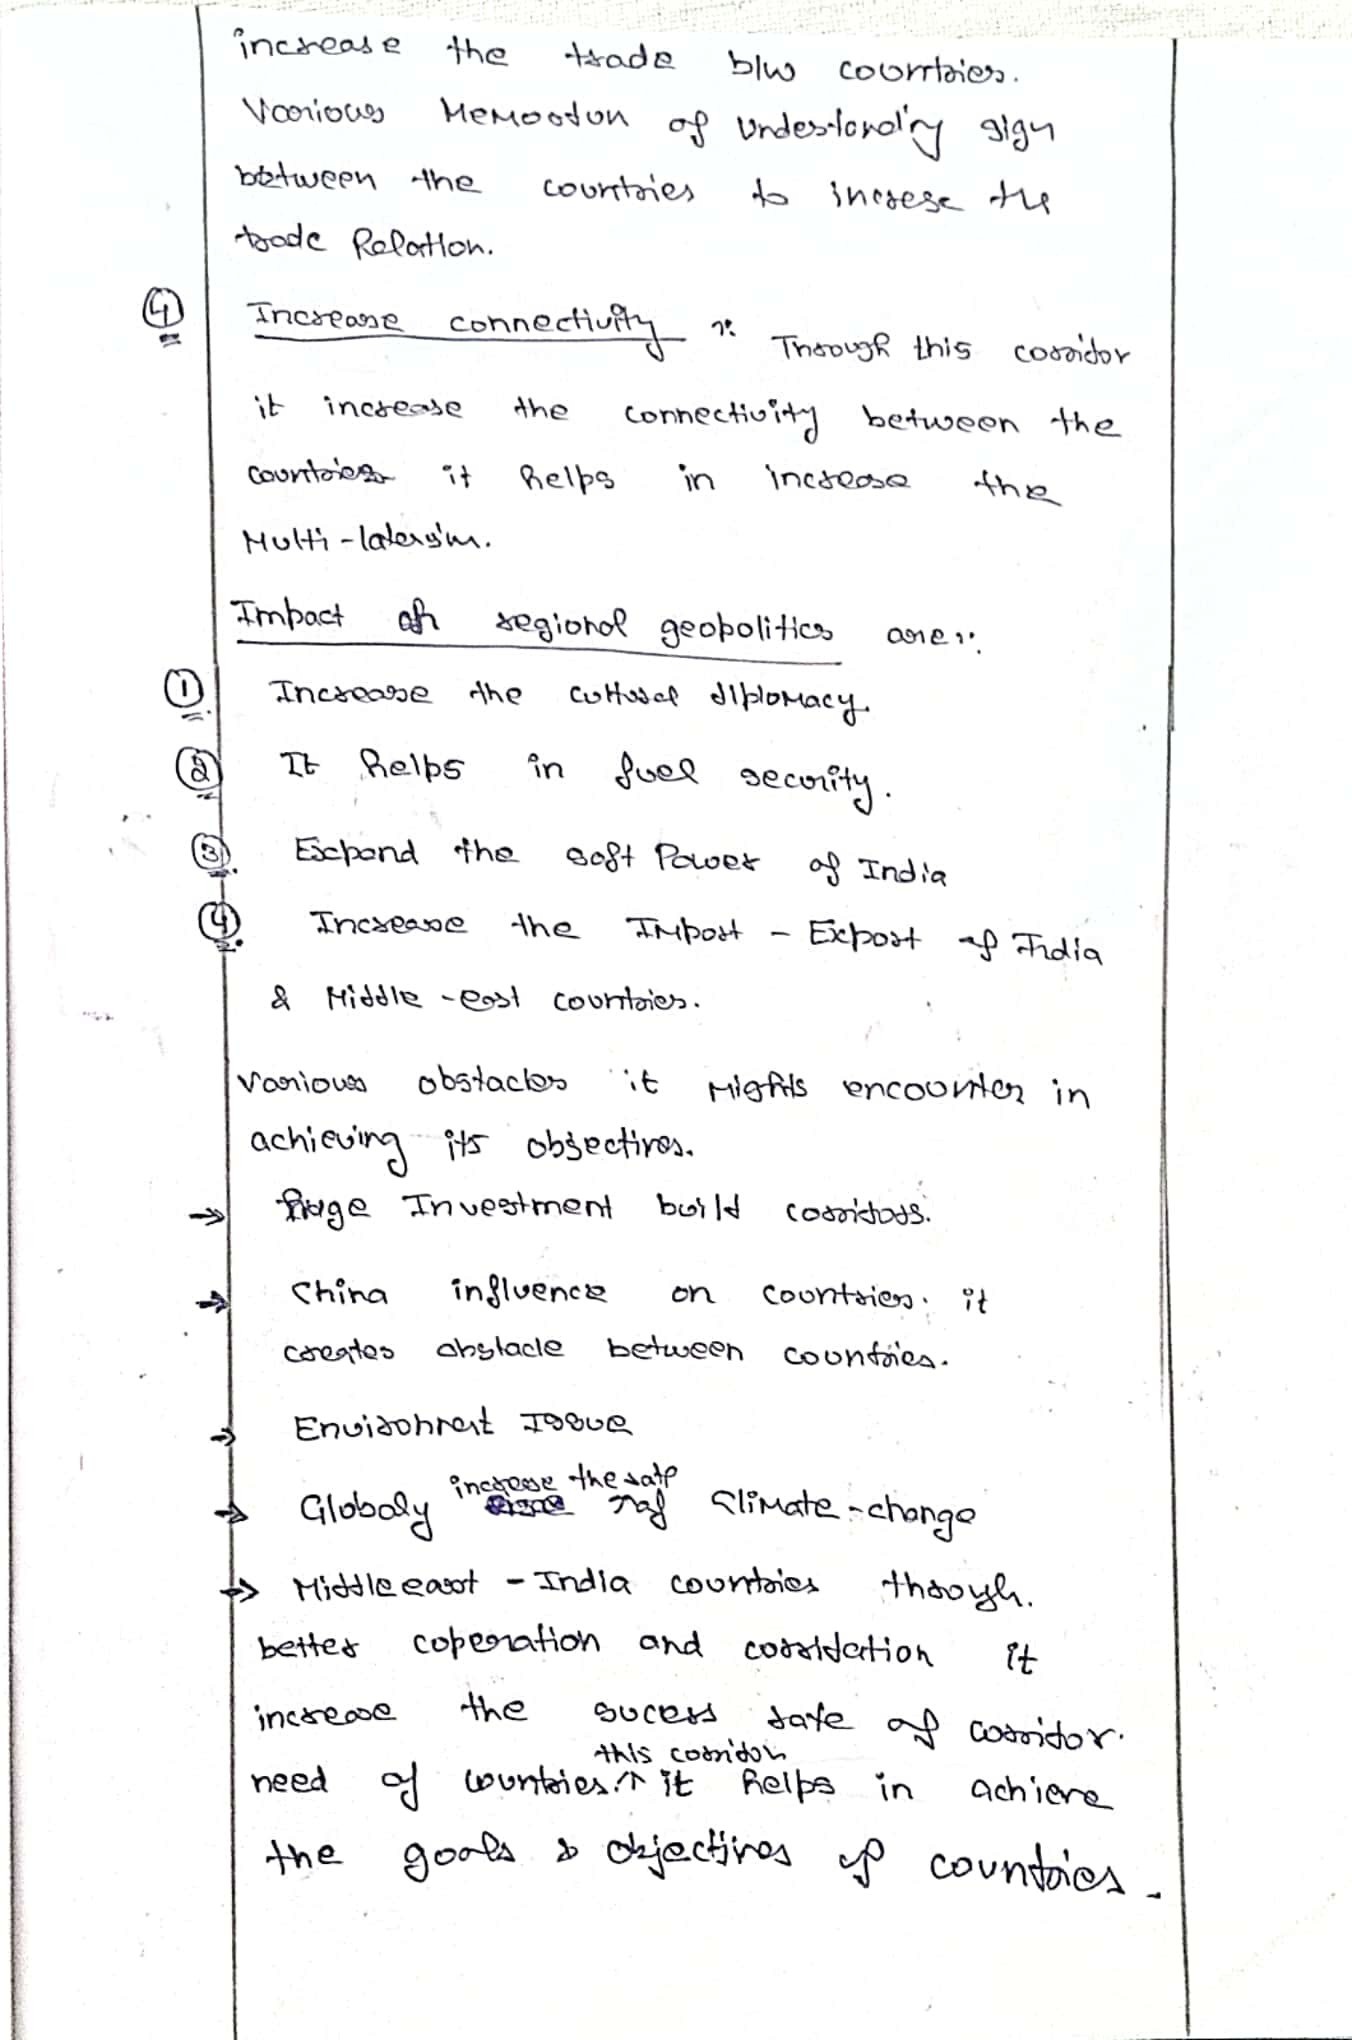 increase the trade b/w countries.
Various Memoodun of Understanding sign
between the countries to increse the
trade Relation.
④ Increase connectivity :- Through this corridor
it increase the connectivity between the
countries it helps in increase the
Multi-latersim.
Impact of regional geopolitics are :-
① Increase the cultural diplomacy.
② It helps in fuel security.
③ Expand the soft Power of India
④ Increase the Import - Export of India
& Middle-east countries.
Various obstacles it Mights encounter in
achieving its objectives.
→ Huge Investment build corridors.
→ China influence on countries. it
creates obstacle between countries.
→ Environment Issue
→ Globaly increase the rate of Climate-change
→ Middle east - India countries through.
better coperation and it
increase the sucess rate of corridor.
need of countries. this corridor it helps in achieve
the goals & objectives of countries.